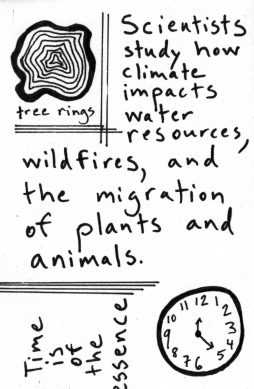 Scientists
study how
climate
impacts
water
resources,
tree rings
wildfires, and
the migration
of plants and
animals.
Time
is
of
the
essence
12
1
2
3
4
5
6
7
8
9
10
11